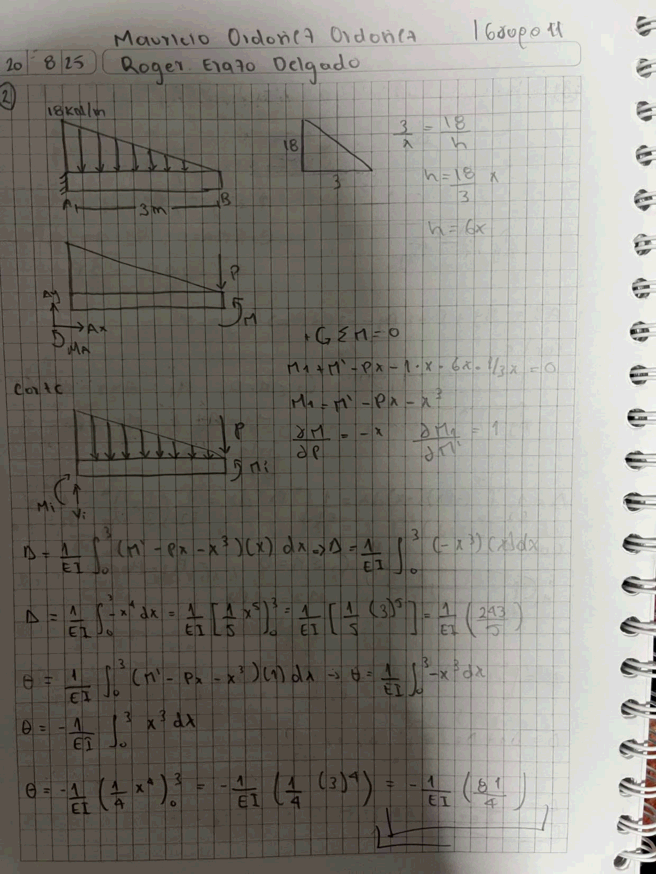 Mauricio Ordoñez Ordoñez | Grupo 11
20 8 25 Roger Erazo Delgado
2)
18 kN/m
A 3m B
18
3
3/x = 18/h
h = 18/3 x
h = 6x
P
Ay
Ax
MA
M
+ G ΣM = 0
M1 + M' - Px - 1 · x · 6x · 1/3x = 0
M1 = M' - Px - x³
∂M/∂P = -x ∂M1/∂M' = 1
Corte
P
Mi
Mi
Vi
Δ = 1/EI ∫₀³ (M' - Px - x³)(x) dx => Δ = 1/EI ∫₀³ (-x³)(x)dx
Δ = 1/EI ∫₀³ -x⁴ dx = 1/EI [1/5 x⁵]₀³ = 1/EI [1/5 (3)⁵] = 1/EI (243/5)
θ = 1/EI ∫₀³ (M' - Px - x³)(1) dx → θ = 1/EI ∫₀³ -x³ dx
θ = -1/EI ∫₀³ x³ dx
θ = -1/EI (1/4 x⁴)₀³ = -1/EI (1/4 (3)⁴) = -1/EI (81/4)